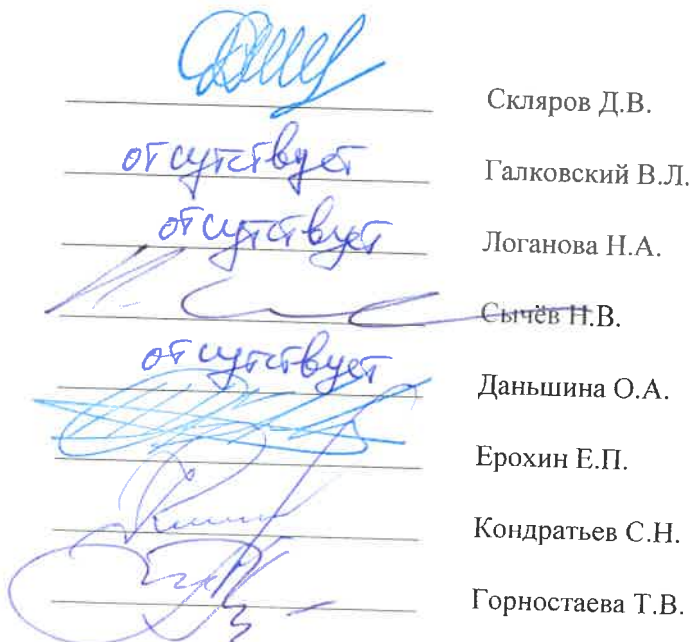 Скляров Д.В.
отсутствует Галковский В.Л.
отсутствует Логанова Н.А.
Сычёв Н.В.
отсутствует Даньшина О.А.
Ерохин Е.П.
Кондратьев С.Н.
Горностаева Т.В.